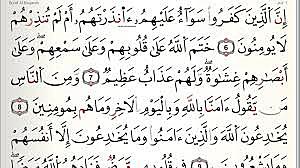 إِنَّ ٱلَّذِينَ كَفَرُوا۟ سَوَآءٌ عَلَيْهِمْ ءَأَنذَرْتَهُمْ أَمْ لَمْ تُنذِرْهُمْ
لَا يُؤْمِنُونَ 6 خَتَمَ ٱللَّهُ عَلَىٰ قُلُوبِهِمْ وَعَلَىٰ سَمْعِهِمْ وَعَلَىٰٓ
أَبْصَٰرِهِمْ غِشَٰوَةٌ وَلَهُمْ عَذَابٌ عَظِيمٌ 7 وَمِنَ ٱلنَّاسِ
مَن يَقُولُ ءَامَنَّا بِٱللَّهِ وَبِٱلْيَوْمِ ٱلْءَاخِرِ وَمَا هُم بِمُؤْمِنِينَ 8
يُخَٰدِعُونَ ٱللَّهَ وَٱلَّذِينَ ءَامَنُوا۟ وَمَا يَخْدَعُونَ إِلَّآ أَنفُسَهُمْ